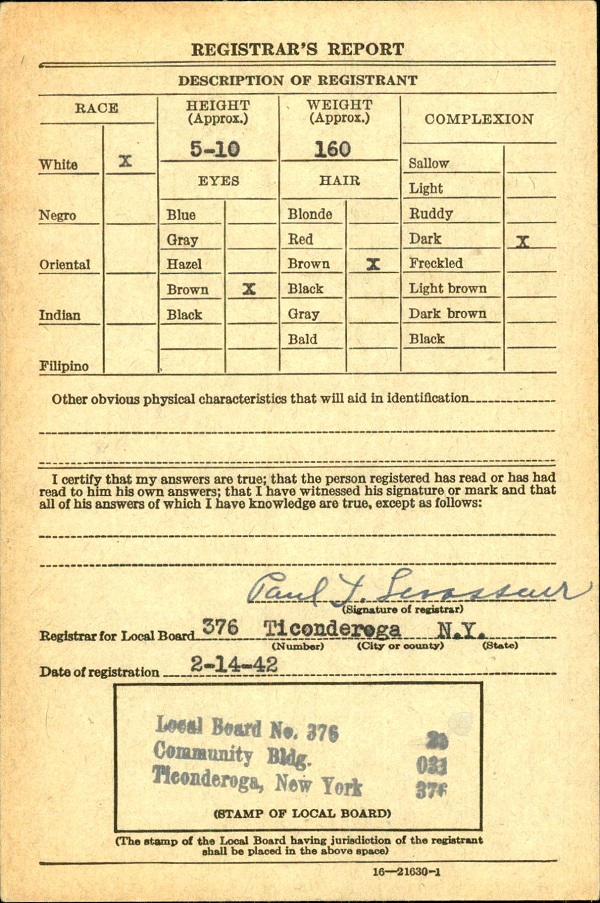 REGISTRAR'S REPORT
DESCRIPTION OF REGISTRANT
RACE
HEIGHT
(Approx.)
WEIGHT
(Approx.)
COMPLEXION
White X
5-10
160
Sallow
EYES
HAIR
Light
Negro
Blue
Blonde
Ruddy
Gray
Red
Dark X
Oriental
Hazel
Brown X
Freckled
Brown X
Black
Light brown
Indian
Black
Gray
Dark brown
Bald
Black
Filipino
Other obvious physical characteristics that will aid in identification
I certify that my answers are true; that the person registered has read or has had
read to him his own answers; that I have witnessed his signature or mark and that
all of his answers of which I have knowledge are true, except as follows:
Paul
(Signature of registrar)
Registrar for Local Board 376 Ticonderoga N.Y.
(Number) (City or county) (State)
Date of registration 2-14-42
Local Board No. 376
Community Bldg. 031
Ticonderoga, New York 376
(STAMP OF LOCAL BOARD)
(The stamp of the Local Board having jurisdiction of the registrant
shall be placed in the above space)
16—21630-1